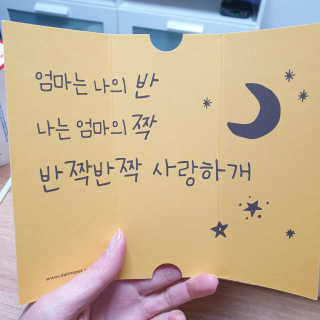 엄마는 나의 반
나는 엄마의 짝
반짝반짝 사랑하개